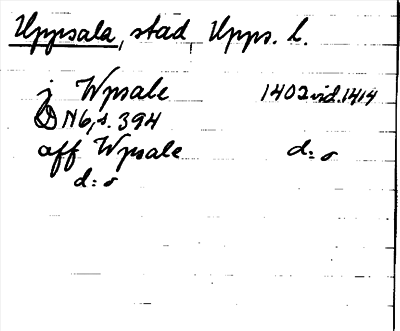 Uppsala, stad, Upps. l.
j Wpsale 1402 vid. 1414
SD N6, s. 394
aff Wpsale d:o
d:o